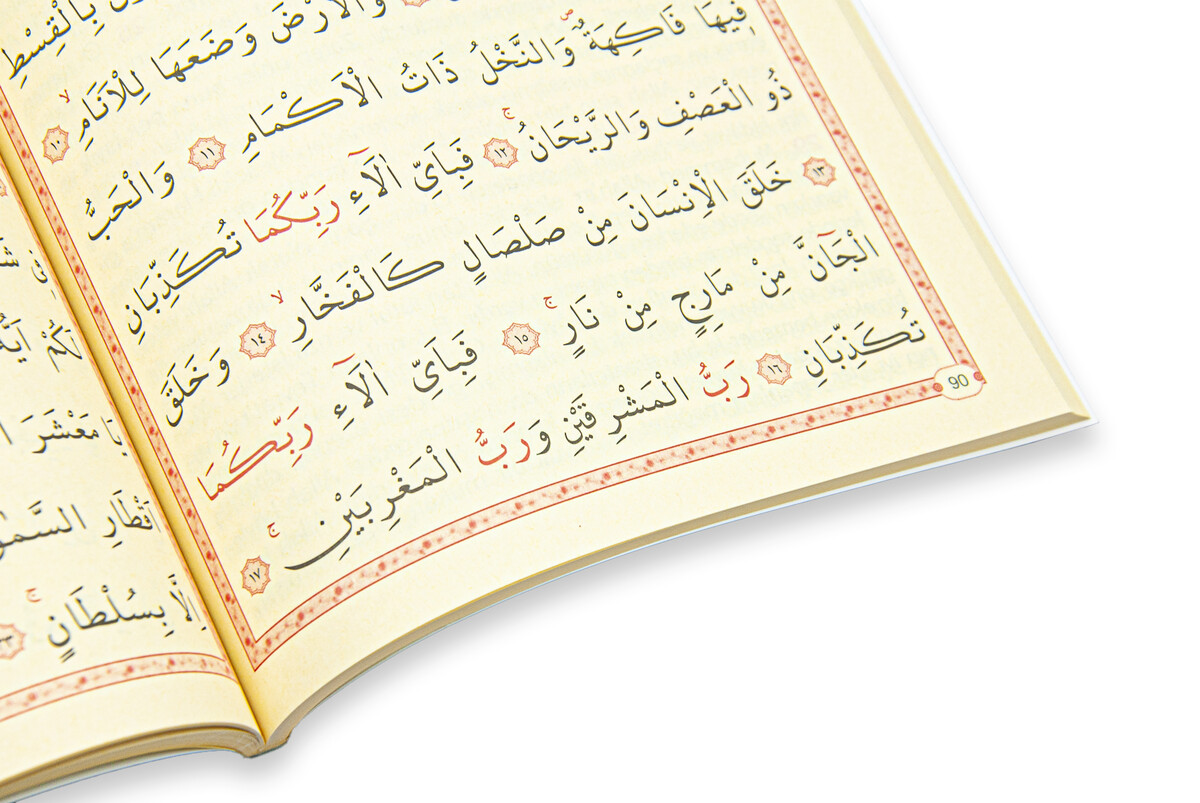 بِالْقِسْطِ
وَالْاَرْضَ وَضَعَهَا لِلْاَنَامِۙ ﴿١٠﴾
فِيهَا فَاكِهَةٌۖ وَالنَّخْلُ ذَاتُ الْاَكْمَامِ ﴿١١﴾ وَالْحَبُّ
ذُو الْعَصْفِ وَالرَّيْحَانُۚ ﴿١٢﴾ فَبِاَيِّ اٰلَٓاءِ رَبِّكُمَا تُكَذِّبَانِ
﴿١٣﴾ خَلَقَ الْاِنْسَانَ مِنْ صَلْصَالٍ كَالْفَخَّارِۙ ﴿١٤﴾ وَخَلَقَ
الْجَٓانَّ مِنْ مَارِجٍ مِنْ نَارٍۚ ﴿١٥﴾ فَبِاَيِّ اٰلَٓاءِ رَبِّكُمَا
تُكَذِّبَانِ ﴿١٦﴾ رَبُّ الْمَشْرِقَيْنِ وَرَبُّ الْمَغْرِبَيْنِۚ ﴿١٧﴾
90
يَا مَعْشَرَ
اَقْطَارِ
اِلَّا بِسُلْطَانٍۚ